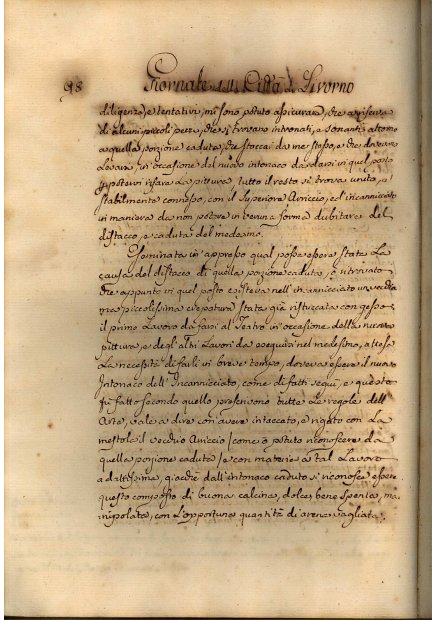 98 Giornale della Città di Livorno
diligenze, e tentativi, mi sono potuto assicurare, che a riserva
di alcuni piccoli pezzi, che si trovano intronati, e sonanti attorno
a quella porzione caduta, che staccai da me stesso, e che dovranno
levarsi, in occasione del nuovo intonaco da darsi in quel posto
per potervi rifare la pittura, tutto il resto si trova unito, e
stabilmente connesso, con il superiore Arriccio, ed incannicciato
in maniera da non potere in veruna forma dubitare del
distacco, e caduta del medesimo.
Esaminata in appresso qual possa essere stata la
causa del distacco di quella porzione caduta, ò ritrovato
che appunto in quel posto esisteva nell'incannicciato un vecchio
una piccolissima crepatura stata già ristuccata con gesso
il primo lavoro da farsi al Teatro in occasione della nuova
pittura, e degl'altri lavori da eseguirsi nel medesimo, attesa
la necessità di farli in breve tempo, doveva essere il nuovo
Intonaco dell'Incannicciato, come di fatti seguì, e questo
fù fatto secondo quello prescrivono tutte le regole dell'
Arte, vale a dire con avere intaccato, e rigato con la
mestola il vecchio Arriccio (come ò potuto riconoscere da
quella porzione caduta) e con materie a tal lavoro
adattissime, giacchè dall'intonaco caduto si riconosce essere
questo composto di buona calcina, dolce, bene spenta, ma=
nipolata, con l'opportuna quantità di arena vagliata,